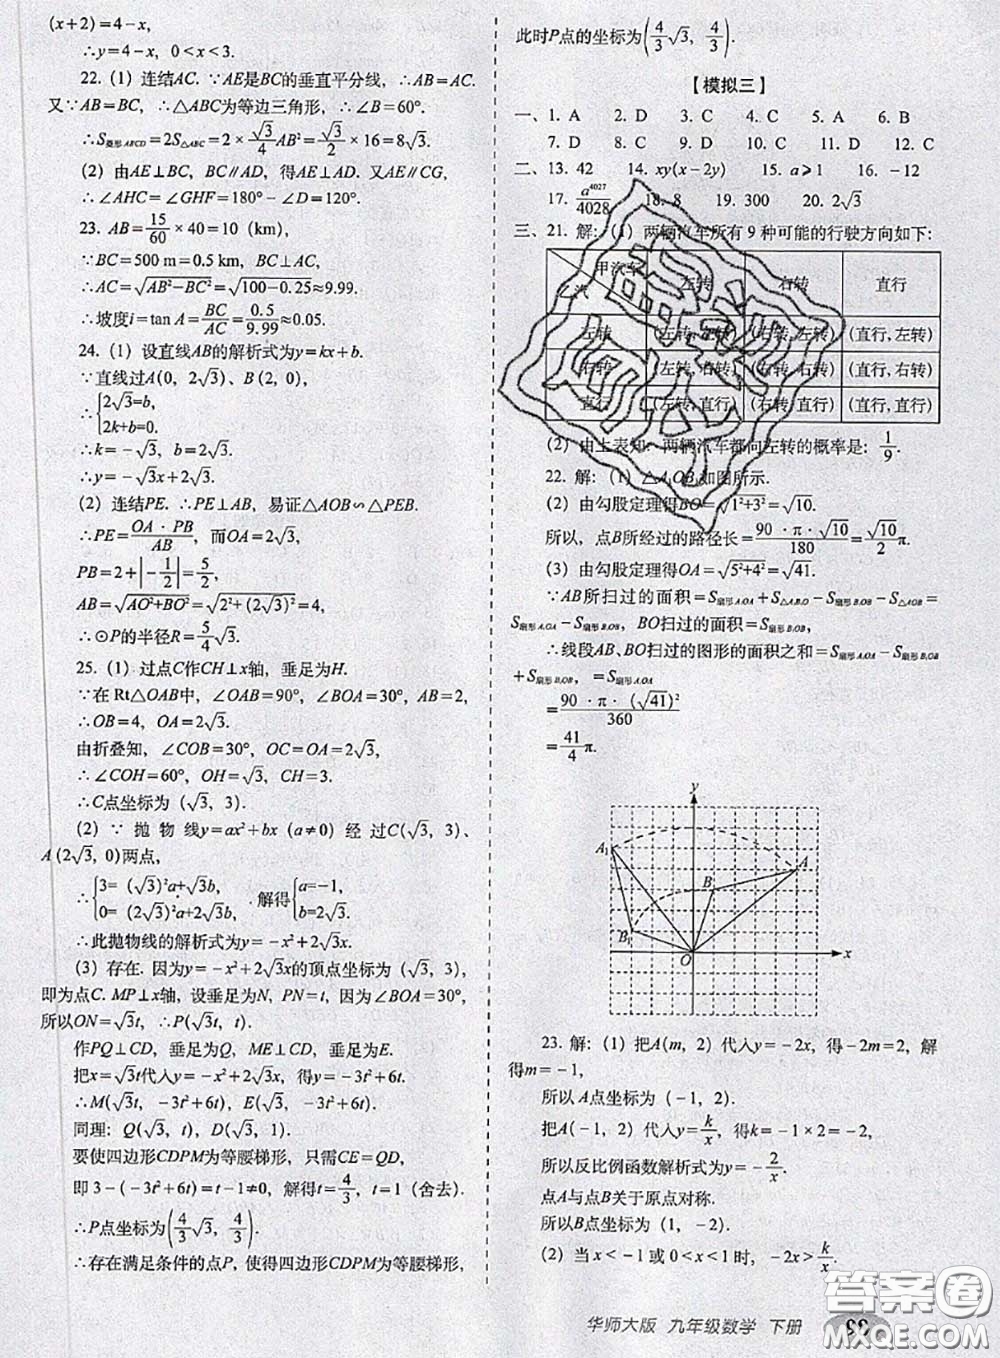 (x+2)=4-x,
∴y=4-x, 0<x<3.
22. (1) 连结AC. ∵AE是BC的垂直平分线, ∴AB=AC.
又∵AB=BC, ∴△ABC为等边三角形, ∴∠B=60°.
∴S菱形ABCD=2S△ABC=2×√3/4AB²=√3/2×16=8√3.
(2) 由AE⊥BC, BC∥AD, 得AE⊥AD. 又AE∥CG,
∴∠AHC=∠GHF=180°-∠D=120°.
23. AB=15/60×40=10 (km),
∵BC=500 m=0.5 km, BC⊥AC,
∴AC=√(AB²-BC²)=√(100-0.25)≈9.99.
∴坡度i=tan A=BC/AC=0.5/9.99≈0.05.
24. (1) 设直线AB的解析式为y=kx+b.
∵直线过A(0, 2√3)、B(2, 0),
∴{2√3=b,
2k+b=0.
∴k=-√3, b=2√3.
∴y=-√3x+2√3.
(2) 连结PE. ∴PE⊥AB, 易证△AOB∽△PEB.
∴PE=OA·PB/AB, 而OA=2√3,
PB=2+|-1/2|=5/2,
AB=√(AO²+BO²)=√(2²+(2√3)²)=4,
∴⊙P的半径R=5/4√3.
25. (1) 过点C作CH⊥x轴, 垂足为H.
∵在Rt△OAB中, ∠OAB=90°, ∠BOA=30°, AB=2,
∴OB=4, OA=2√3.
由折叠知, ∠COB=30°, OC=OA=2√3.
∴∠COH=60°, OH=√3, CH=3.
∴C点坐标为 (√3, 3).
(2) ∵抛物线y=ax²+bx (a≠0) 经过C(√3, 3)、
A(2√3, 0)两点,
∴{3=(√3)²a+√3b, 0=(2√3)²a+2√3b, 解得{a=-1, b=2√3.
∴此抛物线的解析式为y=-x²+2√3x.
(3) 存在. 因为y=-x²+2√3x的顶点坐标为 (√3, 3),
即为点C. MP⊥x轴, 设垂足为N, PN=t, 因为∠BOA=30°,
所以ON=√3t, ∴P(√3t, t).
作PQ⊥CD, 垂足为Q, ME⊥CD, 垂足为E.
把x=√3t代入y=-x²+2√3x, 得y=-3t²+6t.
∴M(√3t, -3t²+6t), E(√3, -3t²+6t).
同理: Q(√3, t), D(√3, 1).
要使四边形CDPM为等腰梯形, 只需CE=QD,
即3-(-3t²+6t)=t-1≠0, 解得t=4/3, t=1 (舍去).
∴P点坐标为(4/3√3, 4/3).
∴存在满足条件的点P, 使得四边形CDPM为等腰梯形,
此时P点的坐标为(4/3√3, 4/3).
【模拟三】
一、1. A 2. D 3. C 4. C 5. A 6. B
7. D 8. C 9. D 10. C 11. D 12. C
二、13. 42 14. xy(x-2y) 15. a≥1 16. -12
17. a⁴⁰²⁷/4028 18. 8 19. 300 20. 2√3
三、21. 解: (1) 两辆汽车所有9种可能的行驶方向如下:
甲汽车 左转 右转 直行
左转 (左转, 左转) (右转, 左转) (直行, 左转)
右转 (左转, 右转) (右转, 右转) (直行, 右转)
直行 (左转, 直行) (右转, 直行) (直行, 直行)
(2) 由上表知: 两辆汽车都向左转的概率是: 1/9.
22. 解: (1) △A₁OB₁如图所示.
(2) 由勾股定理得BO=√(1²+3²)=√10.
所以, 点B所经过的路径长=90·π·√10/180=√10/2π.
(3) 由勾股定理得OA=√(5²+4²)=√41.
∵AB所扫过的面积=S扇形A₁OA+S△A₁B₁O-S扇形B₁OB-S△AOB=
S扇形A₁OA-S扇形B₁OB, BO扫过的面积=S扇形B₁OB,
∴线段AB、BO扫过的图形的面积之和=S扇形A₁OA-S扇形B₁OB
+S扇形B₁OB, =S扇形A₁OA
=90·π·(√41)²/360
=41/4π.
y
A₁
A
B
B₁
O
x
23. 解: (1) 把A(m, 2) 代入y=-2x, 得-2m=2, 解
得m=-1,
所以A点坐标为 (-1, 2).
把A(-1, 2) 代入y=k/x, 得k=-1×2=-2,
所以反比例函数解析式为y=-2/x.
点A与点B关于原点对称.
所以B点坐标为 (1, -2).
(2) 当x<-1或0<x<1时, -2x>k/x.
华师大版 九年级数学 下册
答案圈
MXQE.COM